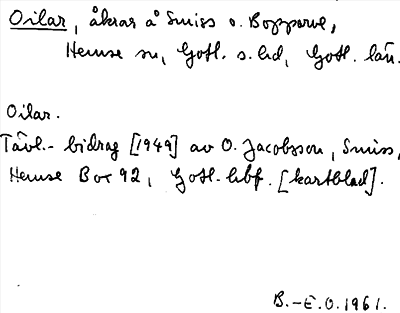 Oilar, åkrar å Smiss o. Bopparve,
Hemse sn, Gotl. s. hd, Gotl. län.
Oilar.
Tävl.- bidrag [1949] av O. Jacobsson, Smiss,
Hemse Box 92, Gotl. hbf. [kartblad].
B.-E.O. 1961.